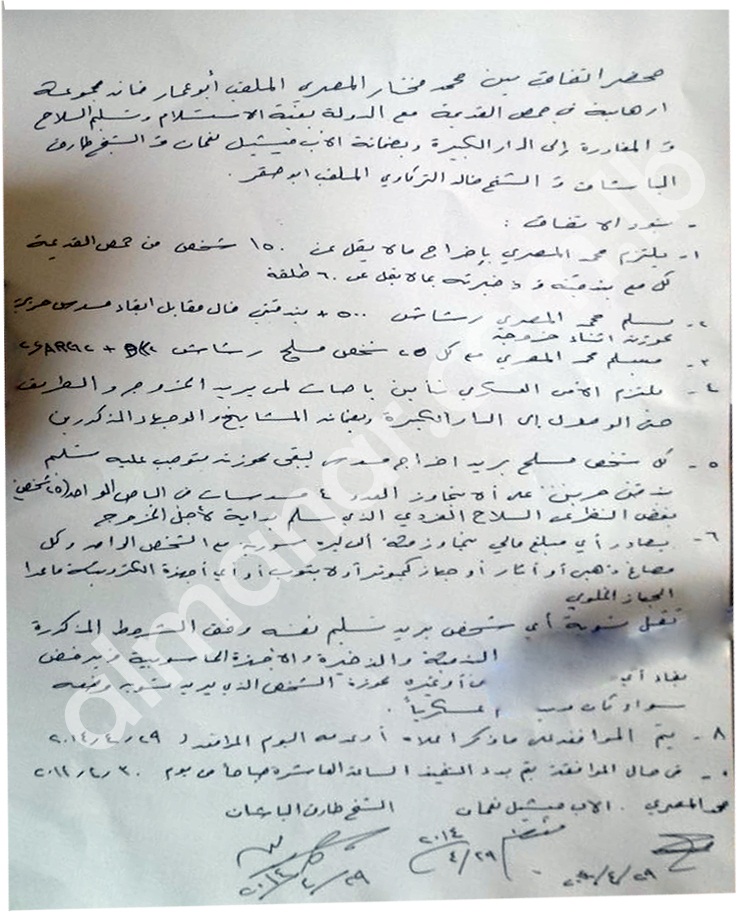 محضر اتفاق بين محمد مختار المصري الملقب أبو عمار قائد مجموعة
ارهابية في حمص القديمة مع الدولة بغية الاستسلام وتسليم السلاح
و المغادرة إلى الدار الكبيرة وبضمانة الاب ميشيل نعمان و الشيخ طارق
و الشيخ خالد التركاوي الملقب ابو صقر .
- بنود الاتفاق :
١- يلتزم محمد المصري بإخراج ما لا يقل عن ١٥٠ شخص من حمص القديمة
كل مع بندقيته و ذخيرته بما لا يقل عن ٦٠ طلقة
٢- يسلم محمد المصري رشاش ٥٠٠ + بندقيتي فال مقابل ابقاء مسدس حربي
بحوزته اثناء خروجه
٣- يسلم محمد المصري مع كل ٢٥ شخص مسلح رشاش
٤- يلتزم الأمن العسكري تأمين باصات لمن يريد الخروج والطريق
حتى الوصول إلى الدار الكبيرة وبضمانة المشايخ والوجهاء المذكورين
٥- كل شخص مسلح يريد اخراج مسدس ليبقى بحوزته يتوجب عليه تسليم
بندقيتين حربيتين على ألا يتجاوز العدد ٤ مسدسات في الباص الواحد (٢٥ شخص)
بغض النظر عن السلاح الفردي الذي سلم بداية لأجل الخروج
٦- يصادر أي مبلغ مالي يتجاوز مئة ألف ليرة سورية مع الشخص الواحد وكل
مصاغ ذهبي أو آثار أو جهاز كمبيوتر أو لابتوب أو أي أجهزة الكترونية ماعدا
الجهاز الخلوي
تقبل تسوية أي شخص يريد تسليم نفسه وفق الشروط المذكورة
البندقية والذخيرة والاجهزة الحاسوبية ويرفض
بقاء أي أو غيره بحوزة الشخص الذي يريد تسوية وضعه
سواء كان عسكرياً .
٨- يتم الموافقة على ما ذكر اعلاه أو عدمه اليوم الموافق لـ ٢٠١٤/٤/٢٩
في حال الموافقة يتم بدء التنفيذ الساعة العاشرة صباحاً من يوم
محمد المصري . الاب ميشيل نعمان الشيخ طارق
٢٠١٤
٤/٢٩